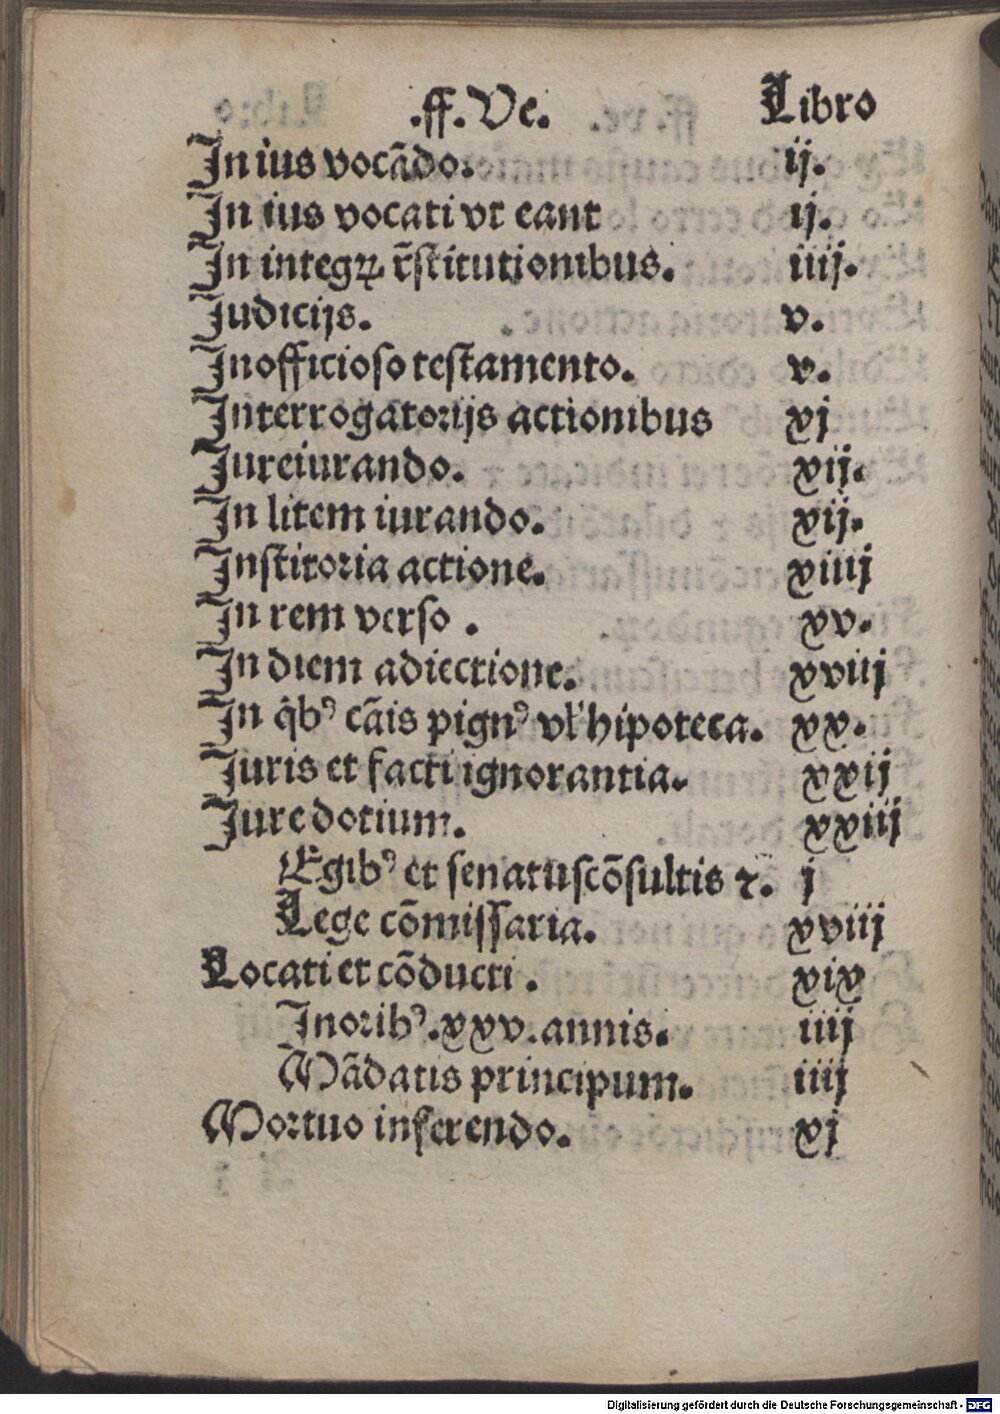 .ff. Ve. Libro
In ius vocãdo. ij.
In ius vocati vt eant ij.
In integꝝ r̃stitutionibus. iiij.
Judicijs. v.
Inofficioso testamento. v.
Interrogatorijs actionibus xj
Jureiurando. xij.
In litem iurando. xij.
Institoria actione. xiiij
In rem verso . xv.
In diem adiectione. xviij
In q̃bꝰ cãis pignꝰ vł hipoteca. xx.
Juris et facti ignorantia. xxij
Jure dotium. xxiij
Egibꝰ et senatuscõsultis ⁊. j
Lege cõmissaria. xviij
Locati et cõducti . xix
Inoribꝰ .xxv. annis. iiij
Mãdatis principum. iiij
Mortuo inferendo. xj
Digitalisierung gefördert durch die Deutsche Forschungsgemeinschaft - DFG